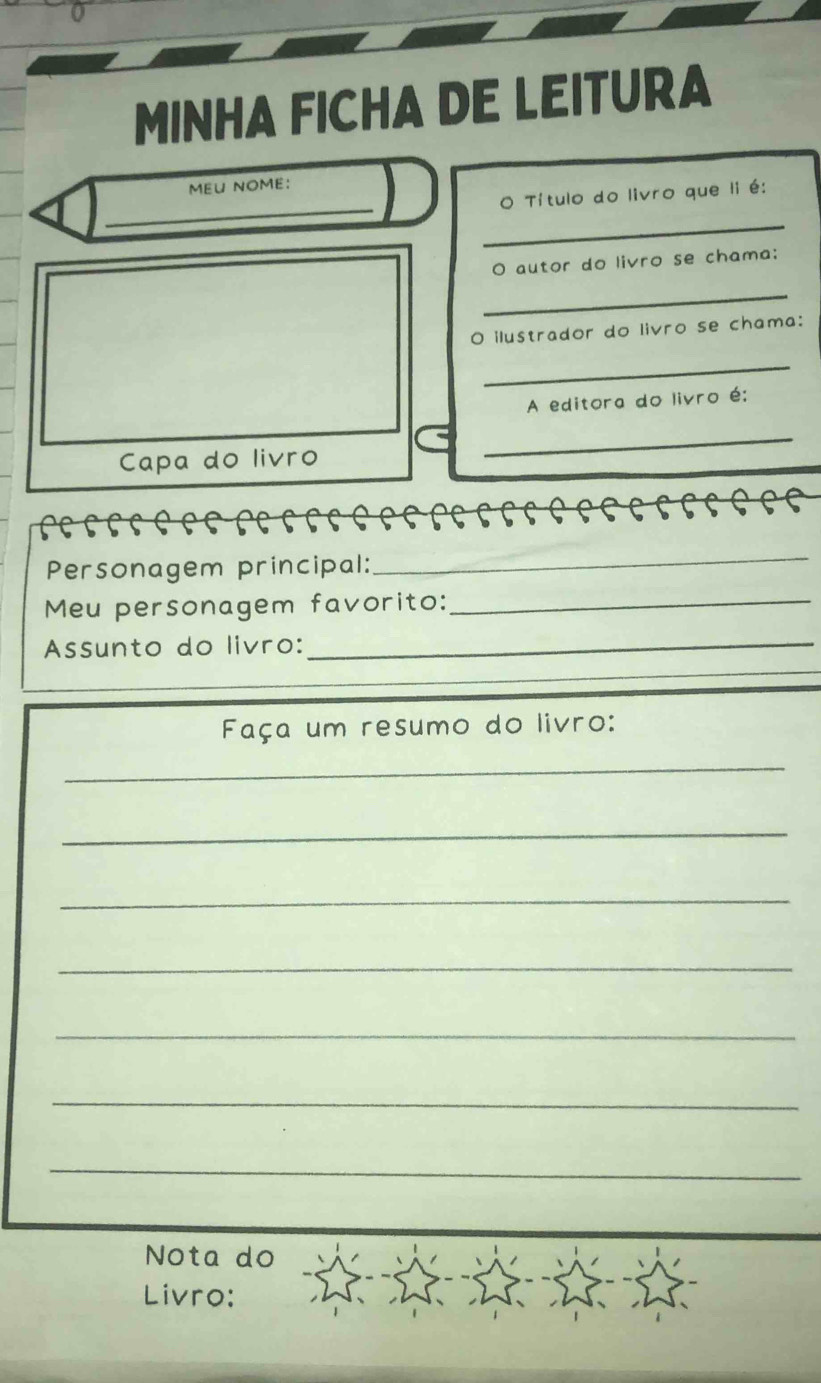 MINHA FICHA DE LEITURA
MEU NOME:
Capa do livro
O Título do livro que li é:
O autor do livro se chama:
O ilustrador do livro se chama:
A editora do livro é:
Personagem principal:
Meu personagem favorito:
Assunto do livro:
Faça um resumo do livro:
Nota do
Livro: